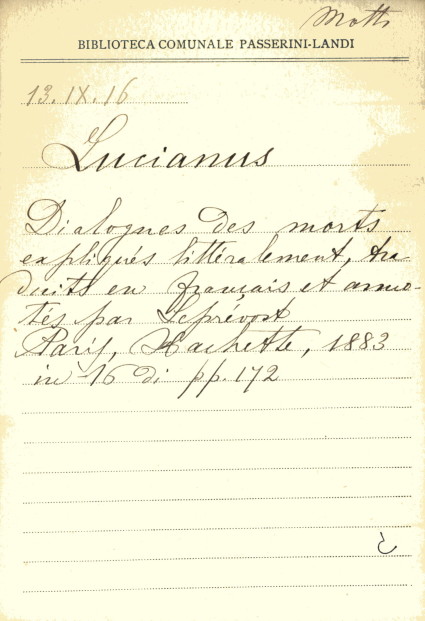 Motti
BIBLIOTECA COMUNALE PASSERINI-LANDI
13.IX.16
Lucianus
Dialogues des morts
expliqués littéralement, tra-
duits en français et anno-
tés par Leprévost
Paris, Hachette, 1883
in-16 di pp. 172